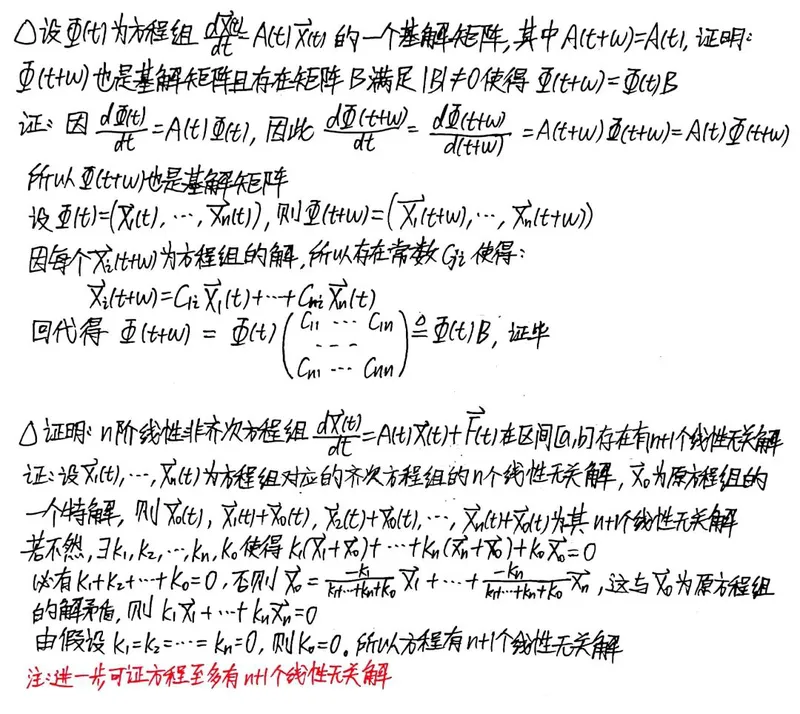 △设Φ(t)为方程组 dX⃗(t)/dt=A(t)X⃗(t) 的一个基解矩阵,其中A(t+w)=A(t),证明:
Φ(t+w)也是基解矩阵且存在矩阵B满足|B|≠0使得Φ(t+w)=Φ(t)B
证: 因 dΦ(t)/dt=A(t)Φ(t), 因此 dΦ(t+w)/dt = dΦ(t+w)/d(t+w) =A(t+w)Φ(t+w)=A(t)Φ(t+w)
所以Φ(t+w)也是基解矩阵
设Φ(t)=(X⃗₁(t),…,X⃗n(t)),则Φ(t+w)=(X⃗₁(t+w),…,X⃗n(t+w))
因每个X⃗i(t+w)为方程组的解,所以存在常数Cji使得:
X⃗i(t+w)=C1iX⃗₁(t)+…+CniX⃗n(t)
回代得 Φ(t+w) = Φ(t)(C11 … C1n --- Cn1 … Cnn)≜Φ(t)B, 证毕
△证明: n阶线性非齐次方程组 dX⃗(t)/dt=A(t)X⃗(t)+F⃗(t)在区间[a,b]存在有n+1个线性无关解
证:设X⃗₁(t),…,X⃗n(t)为方程组对应的齐次方程组的n个线性无关解, X⃗₀为原方程组的
一个特解, 则X⃗₀(t), X⃗₁(t)+X⃗₀(t), X⃗₂(t)+X⃗₀(t),…, X⃗n(t)+X⃗₀(t)为其n+1个线性无关解
若不然,∃k₁,k₂,…,kn,k₀使得 k₁(X⃗₁+X⃗₀)+…+kn(X⃗n+X⃗₀)+k₀X⃗₀=0
必有k₁+k₂+…+k₀=0,否则X⃗₀= -k₁/(k₁+…+kn+k₀) X⃗₁+…+ -kn/(k₁+…+kn+k₀) X⃗n,这与X⃗₀为原方程组
的解矛盾, 则 k₁X⃗₁+…+knX⃗n=0
由假设 k₁=k₂=…=kn=0, 则k₀=0。所以方程有n+1个线性无关解
注:进一步可证方程至多有n+1个线性无关解